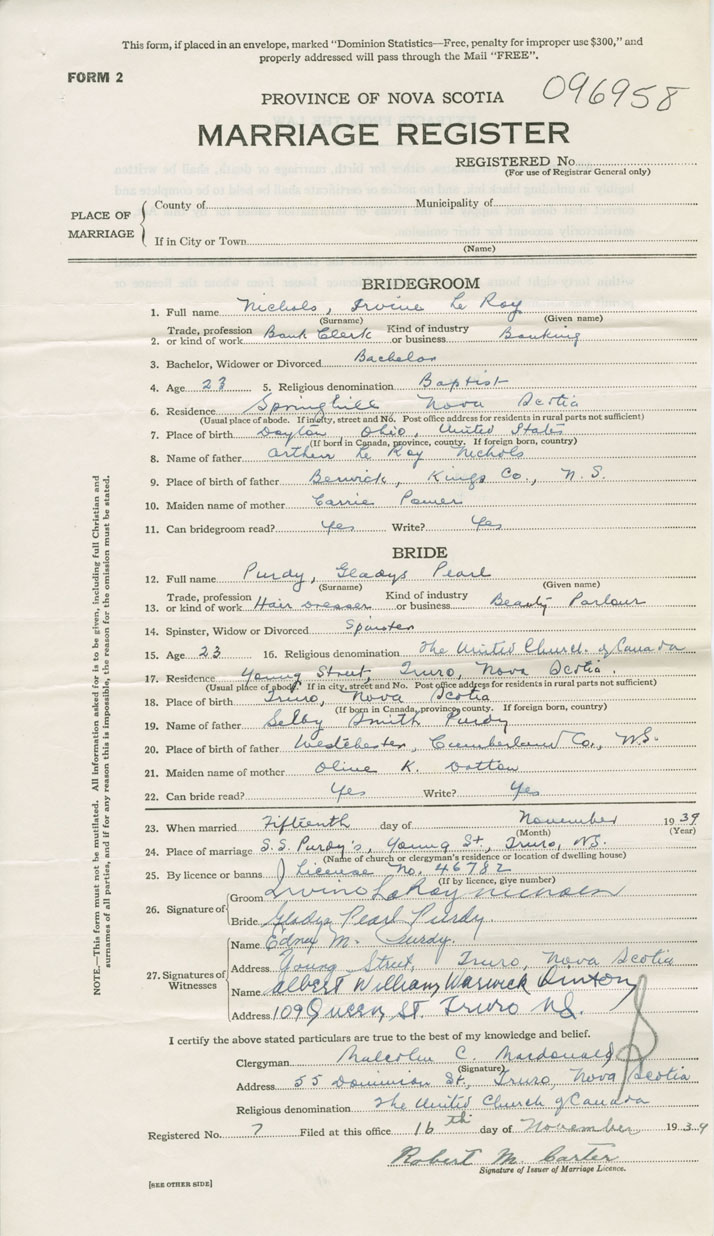 This form, if placed in an envelope, marked "Dominion Statistics—Free, penalty for improper use $300," and
properly addressed will pass through the Mail "FREE".
FORM 2
096958
PROVINCE OF NOVA SCOTIA
MARRIAGE REGISTER
REGISTERED No.
(For use of Registrar General only)
PLACE OF MARRIAGE
County of Municipality of
If in City or Town
(Name)
BRIDEGROOM
1. Full name Nichols, Irvine Le Roy
(Surname) (Given name)
2. Trade, profession or kind of work Bank Clerk Kind of industry or business Banking
3. Bachelor, Widower or Divorced Bachelor
4. Age 23 5. Religious denomination Baptist
6. Residence Springhill Nova Scotia
(Usual place of abode. If in city, street and No. Post office address for residents in rural parts not sufficient)
7. Place of birth Dayton, Ohio, United States
(If born in Canada, province, county. If foreign born, country)
8. Name of father Arthur Le Roy Nichols
9. Place of birth of father Berwick, Kings Co., N.S.
10. Maiden name of mother Carrie
11. Can bridegroom read? Yes Write? Yes
BRIDE
12. Full name Purdy, Gladys Pearl
(Surname) (Given name)
13. Trade, profession or kind of work Hair Dresser Kind of industry or business Beauty Parlour
14. Spinster, Widow or Divorced Spinster
15. Age 23 16. Religious denomination The United Church of Canada
17. Residence Young Street, Truro, Nova Scotia.
(Usual place of abode. If in city, street and No. Post office address for residents in rural parts not sufficient)
18. Place of birth Truro, Nova Scotia
(If born in Canada, province, county. If foreign born, country)
19. Name of father Selby Smith Purdy
20. Place of birth of father Westchester, Cumberland Co., N.S.
21. Maiden name of mother Olive K. Dotton
22. Can bride read? Yes Write? Yes
23. When married Fifteenth day of November 1939
(Month) (Year)
24. Place of marriage S.S. Purdy's, Young St, Truro, N.S.
(Name of church or clergyman's residence or location of dwelling house)
25. By licence or banns License No. 46782
(If by licence, give number)
26. Signature of
Groom Irvine LeRoy Nichols
Bride Gladys Pearl Purdy.
27. Signatures of Witnesses
Name M. Purdy.
Address Young Street, Truro, Nova Scotia
Name Albert William Warwick
Address 109 Queen St. Truro N.S.
I certify the above stated particulars are true to the best of my knowledge and belief.
Clergyman Malcolm C. Macdonald
(Signature)
Address 55 Dominion St., Truro, Nova Scotia
Religious denomination The United Church of Canada
Registered No. 7 Filed at this office 16th day of November 1939
Robert M. Carter
Signature of Issuer of Marriage Licence.
[SEE OTHER SIDE]
NOTE.—This form must not be mutilated. All information asked for is to be given, including full Christian and
surnames of all parties, and if for any reason this is impossible, the reason for the omission must be stated.